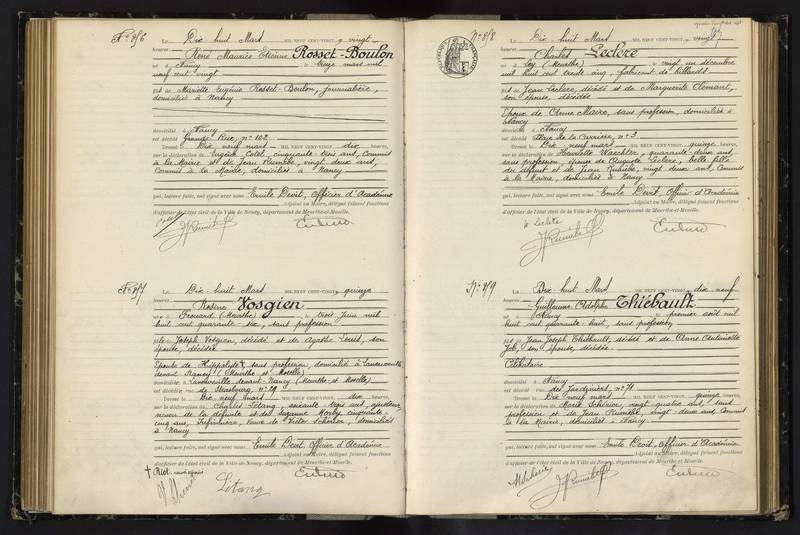 N° 876
Le Dix huit Mars MIL NEUF CENT-VINGT, à vingt
heures,
René Maurice Etienne Rosset-Boulon
né à Nancy le treize mars mil
neuf cent vingt
fils de Mariette Eugénie Rosset-Boulon, journalière,
domiciliée à Nancy
domicilié à Nancy
est décédé Grande Rue, n° 102
Dressé le Dix neuf mars MIL NEUF CENT-VINGT, dix heures,
sur la déclaration de Eugène Colel, cinquante trois ans, Commis
à la Mairie et de Jean Rumébe, vingt deux ans,
Commis à la Mairie, domiciliés à Nancy
qui, lecture faite, ont signé avec nous Emile Devit, Officier d'Académie
Adjoint au Maire, délégué faisant fonctions
d'officier de l'état civil de la Ville de Nancy, département de Meurthe-et-Moselle.
N° 877
Le Dix huit Mars MIL NEUF CENT-VINGT, quinze
heures
Rosine Vosgien
née à Frouard (Meurthe) le trois juin mil
huit cent quarante six, sans profession
fille de Joseph Vosgien, décédé et de Agathe son
épouse, décédée
Epouse de Hippolyte † sans profession, domicilié à Laneuveville
devant Nancy (Meurthe et Moselle)
domiciliée à Laneuveville devant Nancy (Meurthe et Moselle)
est décédée rue de Strasbourg, n° 29
Dressé le Dix neuf mars MIL NEUF CENT-VINGT, dix heures,
sur la déclaration de Charles Létang, soixante trois ans, ajusteur,
neveu de la défunte et de Suzanne cinquante
cinq ans, Infirmière, veuve de Victor domiciliés
à Nancy
qui, lecture faite, ont signé avec nous Emile Devit, Officier d'Académie
Adjoint au Maire, délégué faisant fonctions
d'officier de l'état civil de la Ville de Nancy, département de Meurthe-et-Moselle.
Létang
N° 878
Le Dix huit Mars MIL NEUF CENT-VINGT, vingt
heures,
Charles Leclerc
né à (Meurthe) le vingt un décembre
mil huit cent trente cinq, fabricant de billards
fils de Jean Leclerc, décédé et de Marguerite Clement,
son épouse, décédée
Epoux de Anne Maire, sans profession, domiciliée à
Nancy
domicilié à Nancy
est décédé Place de la Carrière, n° 3
Dressé le Dix neuf mars MIL NEUF CENT-VINGT, quinze heures,
sur la déclaration de Henriette Waechter, quarante deux ans,
sans profession, épouse de Auguste Leclerc, belle fille
du défunt et de Jean Rumébe, vingt deux ans, Commis
à la Mairie, domiciliés à Nancy
qui, lecture faite, ont signé avec nous Emile Devit, Officier d'Académie
Adjoint au Maire, délégué faisant fonctions
d'officier de l'état civil de la Ville de Nancy, département de Meurthe-et-Moselle.
N° 879
Le Dix huit Mars MIL NEUF CENT-VINGT, dix neuf
heures
Guillaume Adolphe Thiébault
né à Nancy le premier août mil
huit cent quarante huit, sans profession
fils de Jean Joseph Thiébault, décédé et de Anne Antoinette
Job, son épouse, décédée
Célibataire
domicilié à Nancy
est décédé rue des Jardiniers, n° 70
Dressé le Dix neuf mars MIL NEUF CENT-VINGT, quinze heures,
sur la déclaration de Marie vingt quatre ans, sans
profession et de Jean Rumébe, vingt deux ans, Commis
à la Mairie, domiciliés à Nancy
qui, lecture faite, ont signé avec nous Emile Devit, Officier d'Académie
Adjoint au Maire, délégué faisant fonctions
d'officier de l'état civil de la Ville de Nancy, département de Meurthe-et-Moselle.